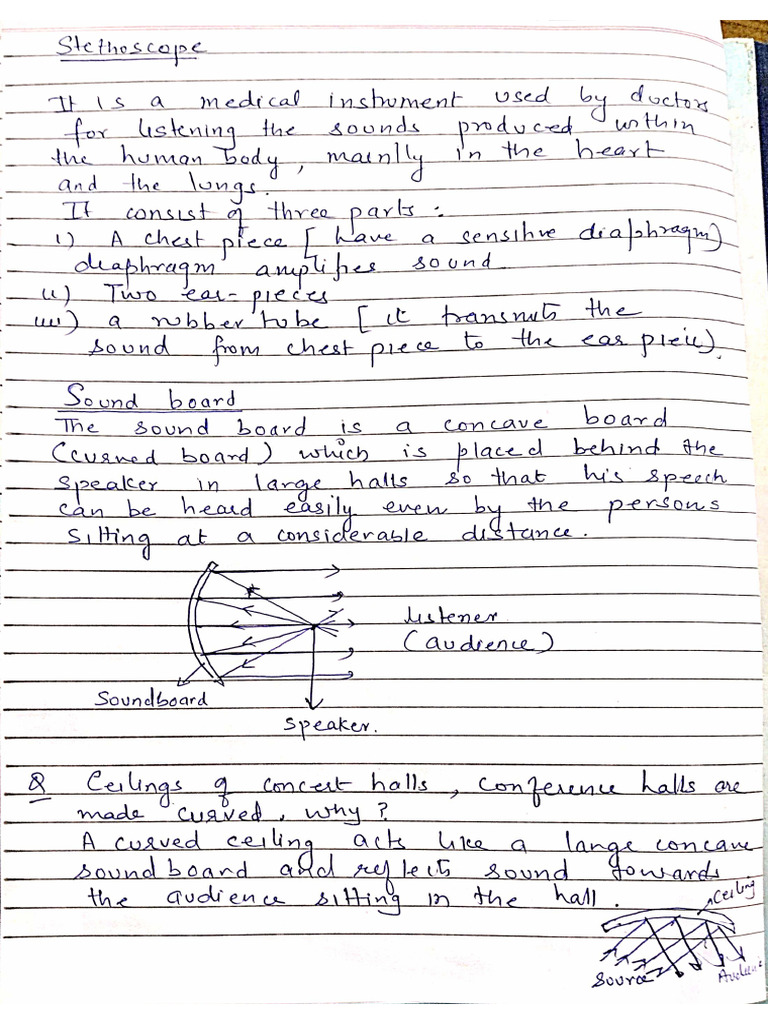 Stethoscope
It is a medical instrument used by doctors
for listening the sounds produced within
the human body, mainlly in the heart
and the lungs.
It consist of three parts :
i) A chest piece [ have a sensitive diaphragm)
diaphragm amplifies sound.
ii) Two ear-pieces
iii) a rubber tube [ it transmits the
sound from chest piece to the ear piece).
Sound board
The sound board is a concave board
(curved board) which is placed behind the
speaker in large halls so that his speech
can be heard easily even by the persons
sitting at a considerable distance.
listener
(audience)
Soundboard
Speaker.
Q Ceilings of concert halls, conference halls are
made curved, why?
A curved ceiling acts like a large concave
soundboard and reflects sound towards
the audience sitting in the hall.
Ceiling
Source